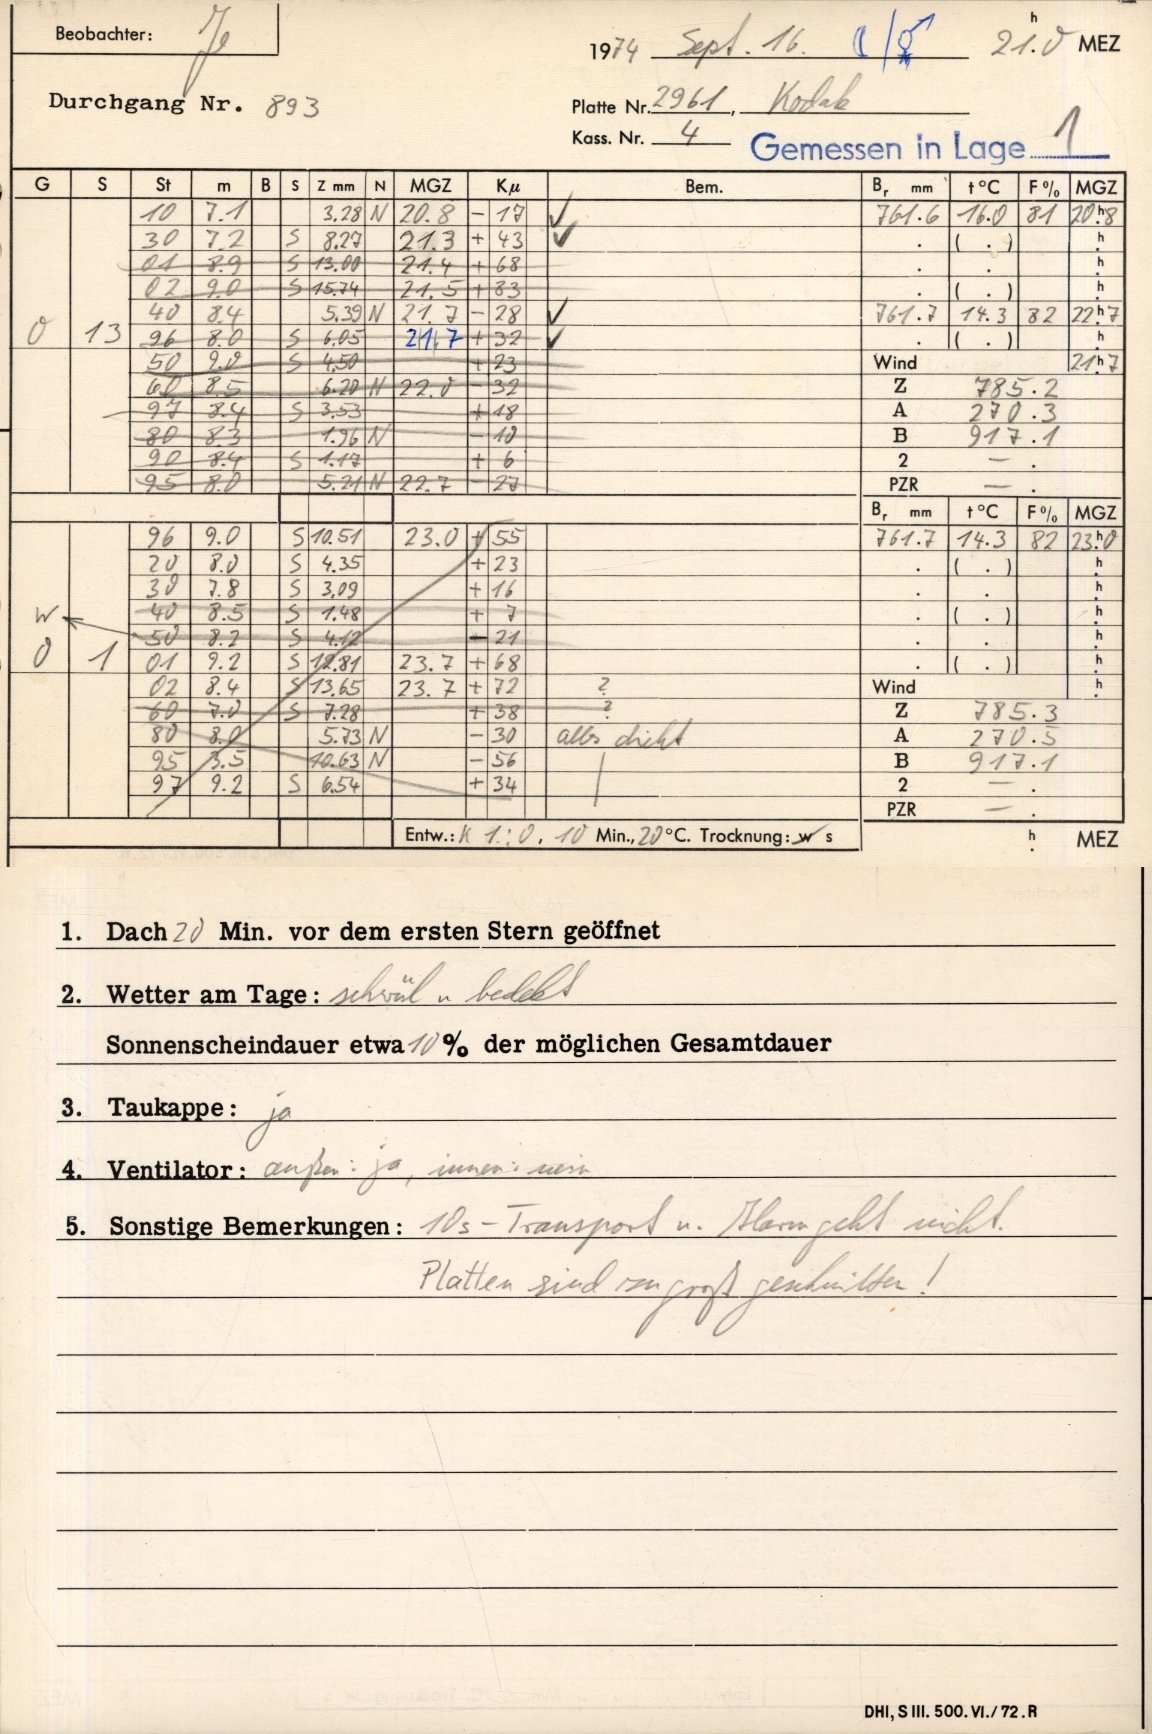 Beobachter: Je
1974 Sept. 16. 21.0 h MEZ
Durchgang Nr. 893
Platte Nr. 2961, Kodak
Kass. Nr. 4 Gemessen in Lage 1
G S St m B S Z mm N MGZ Kμ Bem. Br mm t°C F% MGZ
10 7.1 3.28 N 20.8 - 17 ✓ 761.6 16.0 81 20h.8
30 7.2 S 8.27 21.3 + 43 ✓ . ( . ) h
01 8.9 S 13.00 21.4 + 68 . . h
02 9.0 S 15.74 21.5 + 83 . ( . ) h
40 8.4 5.39 N 21.7 - 28 ✓ 761.7 14.3 82 22h.7
0 13 96 8.0 S 6.05 21.7 + 32 ✓ . ( . ) h
50 9.0 S 4.50 + 23 Wind 21h.7
60 8.5 6.20 N 22.0 - 32 Z 785.2
97 8.4 S 3.53 + 18 A 270.3
80 8.3 1.96 N - 10 B 917.1
90 8.4 S 1.17 + 6 2 — .
95 8.0 5.21 N 22.7 - 27 PZR — .
Br mm t°C F% MGZ
96 9.0 S 10.51 23.0 + 55 761.7 14.3 82 23h.0
20 8.0 S 4.35 + 23 . ( . ) h
30 7.8 S 3.09 + 16 . . h
W 40 8.5 S 1.48 + 7 . ( . ) h
50 8.2 S 4.12 - 21 . . h
0 1 01 9.2 S 12.81 23.7 + 68 . ( . ) h
02 8.4 S 13.65 23.7 + 72 ? Wind h
60 7.0 S 7.28 + 38 ? Z 785.3
80 8.0 5.73 N - 30 alles dicht A 270.5
95 3.5 10.63 N - 56 | B 917.1
97 9.2 S 6.54 + 34 2 — .
PZR — .
Entw.: K 1:0, 10 Min., 20°C. Trocknung: w s h MEZ
1. Dach 20 Min. vor dem ersten Stern geöffnet
2. Wetter am Tage: schwül u bedeckt
Sonnenscheindauer etwa 10 % der möglichen Gesamtdauer
3. Taukappe: ja
4. Ventilator: außen: ja, innen: nein
5. Sonstige Bemerkungen: 10s-Transport u. Alarm geht nicht.
Platten sind zu groß geschnitten!
DHI, S III. 500. VI./72. R